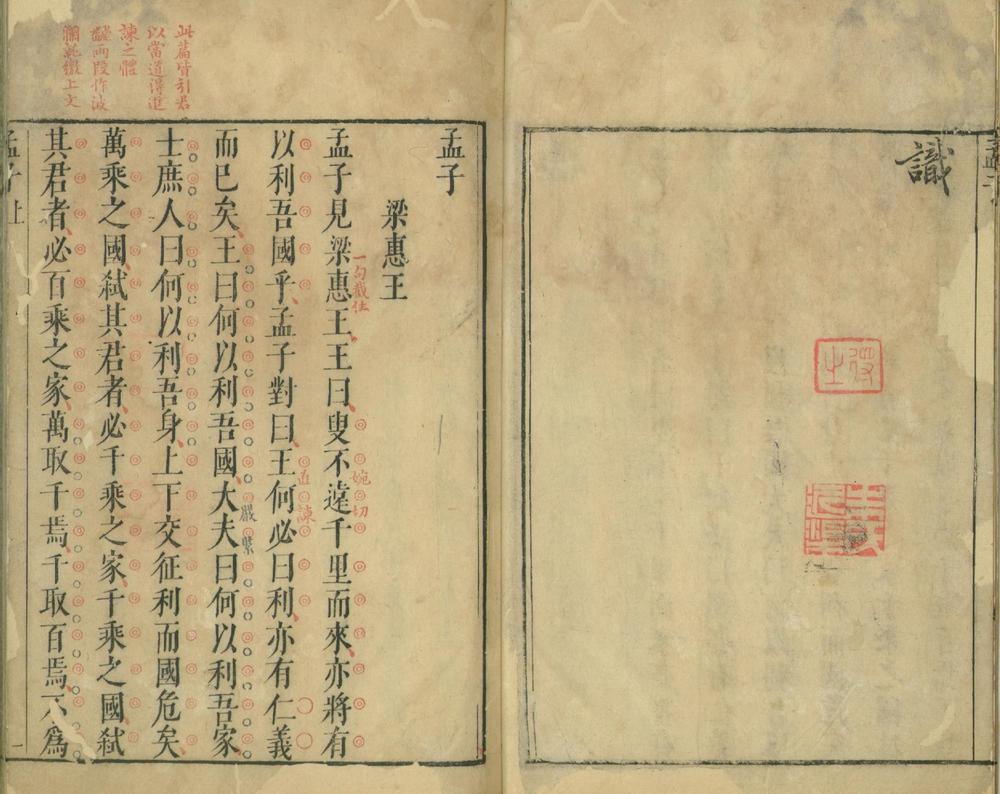 識
得之
孟子
梁惠王
孟子見梁惠王王曰叟不遠千里而來亦將有
以利吾國乎孟子對曰王何必曰利亦有仁義
而已矣王曰何以利吾國大夫曰何以利吾家
士庶人曰何以利吾身上下交征利而國危矣
萬乘之國弒其君者必千乘之家千乘之國弒
其君者必百乘之家萬取千焉千取百焉不為
孟子 上
一
此篇皆引君
以當道得進
諫之體
兩段作波
上文
一句截住
婉切
直諫
嚴緊